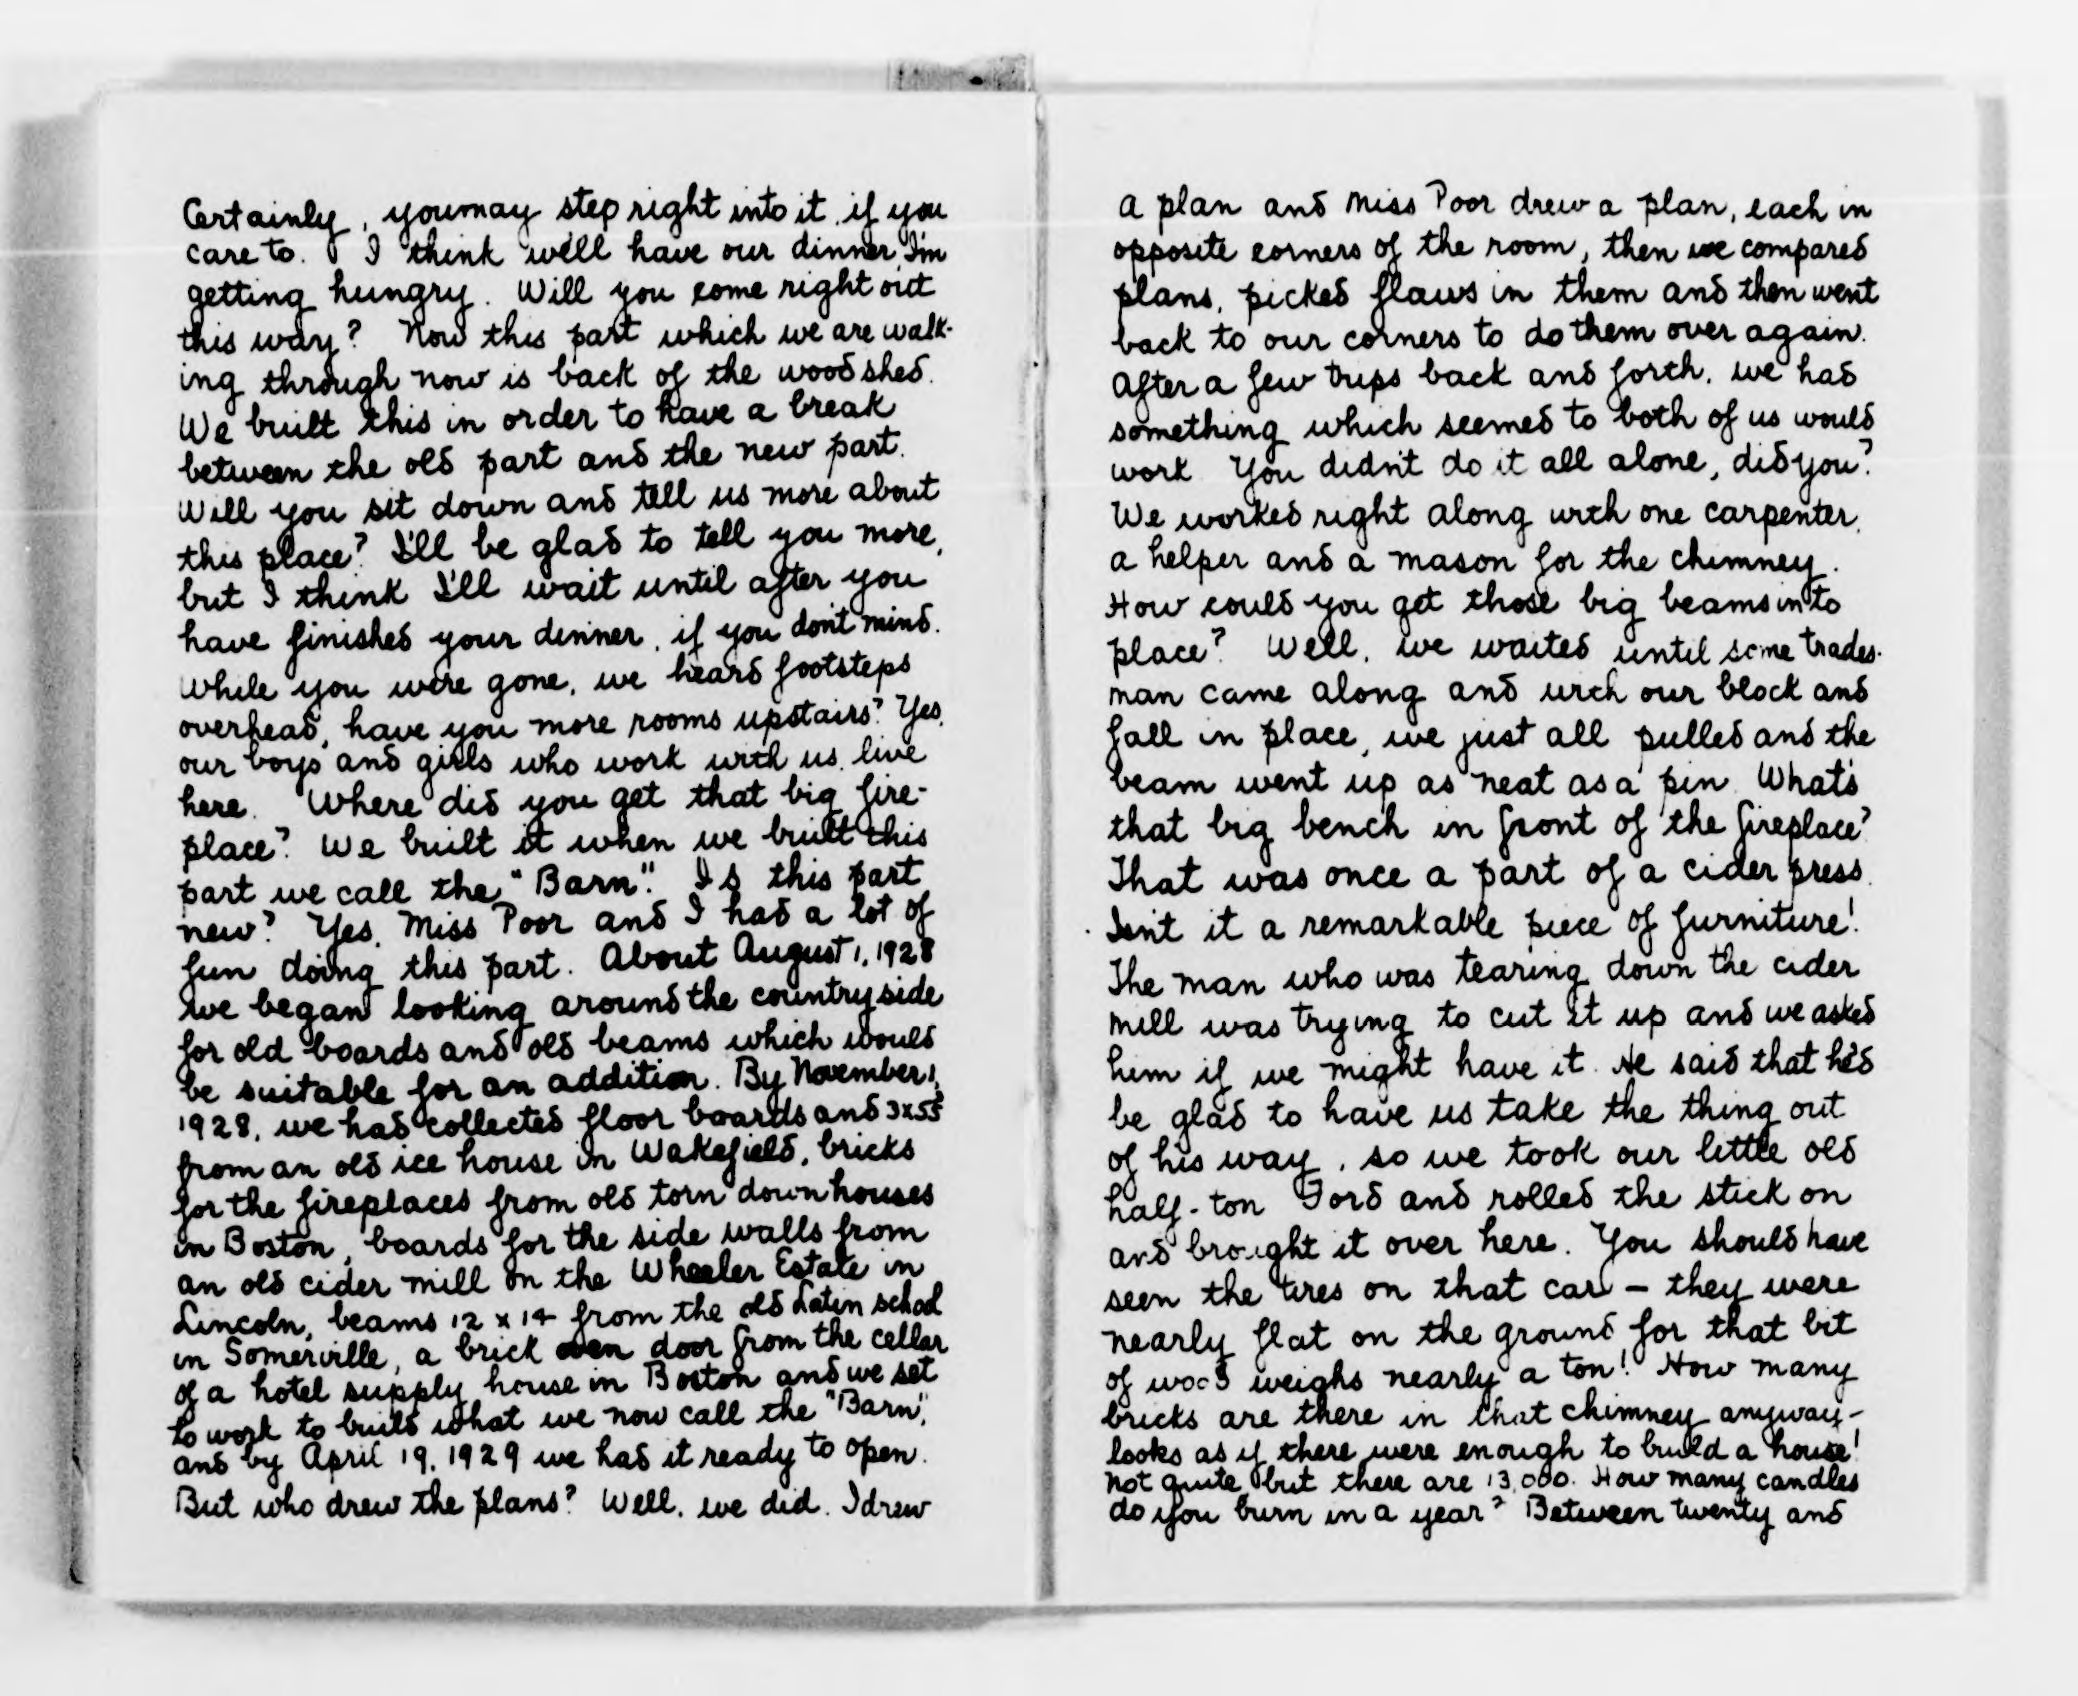 Certainly, you may step right into it if you
care to. I think we'll have our dinner, I'm
getting hungry. Will you come right out
this way? Now this part which we are walk-
ing through now is back of the woodshed.
We built this in order to have a break
between the old part and the new part.
Will you sit down and tell us more about
this place? I'll be glad to tell you more,
but I think I'll wait until after you
have finished your dinner, if you don't mind.
While you were gone, we heard footsteps
overhead, have you more rooms upstairs? Yes,
our boys and girls who work with us, live
here. Where did you get that big fire-
place? We built it when we built this
part we call the "Barn". Is this part
new? Yes, Miss Poor and I had a lot of
fun doing this part. About August 1, 1928
we began looking around the countryside
for old boards and old beams which would
be suitable for an addition. By November 1,
1928, we had collected floor boards and 3x5s
from an old ice house in Wakefield, bricks
for the fireplaces from old torn down houses
in Boston, boards for the side walls from
an old cider mill on the Wheeler Estate in
Lincoln, beams 12 x 14 from the old Latin school
in Somerville, a brick oven door from the cellar
of a hotel supply house in Boston and we set
to work to build what we now call the "Barn",
and by April 19, 1929 we had it ready to open.
But who drew the plans? Well, we did. I drew
a plan and Miss Poor drew a plan, each in
opposite corners of the room, then we compared
plans, picked flaws in them and then went
back to our corners to do them over again.
After a few trips back and forth, we had
something which seemed to both of us would
work. You didn't do it all alone, did you?
We worked right along with one carpenter,
a helper and a mason for the chimney.
How could you get those big beams into
place? Well, we waited until some trades-
man came along and with our block and
fall in place, we just all pulled and the
beam went up as neat as a pin. What's
that big bench in front of the fireplace?
That was once a part of a cider press.
Isn't it a remarkable piece of furniture!
The man who was tearing down the cider
mill was trying to cut it up and we asked
him if we might have it. He said that he'd
be glad to have us take the thing out
of his way, so we took our little old
half-ton Ford and rolled the stick on
and brought it over here. You should have
seen the tires on that car – they were
nearly flat on the ground, for that bit
of wood weighs nearly a ton! How many
bricks are there in that chimney anyway –
looks as if there were enough to build a house!
Not quite, but there are 13,000. How many candles
do you burn in a year? Between twenty and